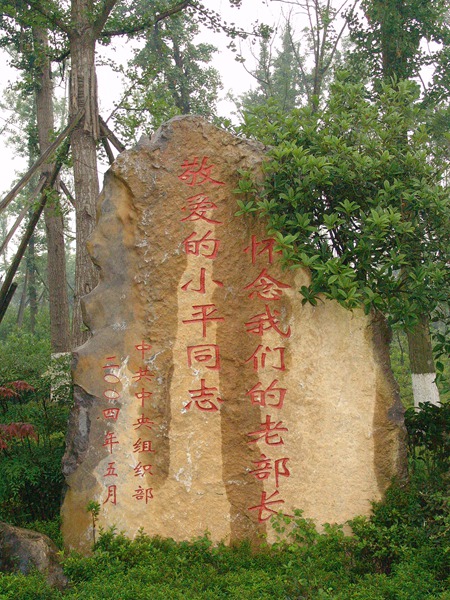 怀念我们的老部长
敬爱的小平同志
中共中央组织部
二〇〇四年五月